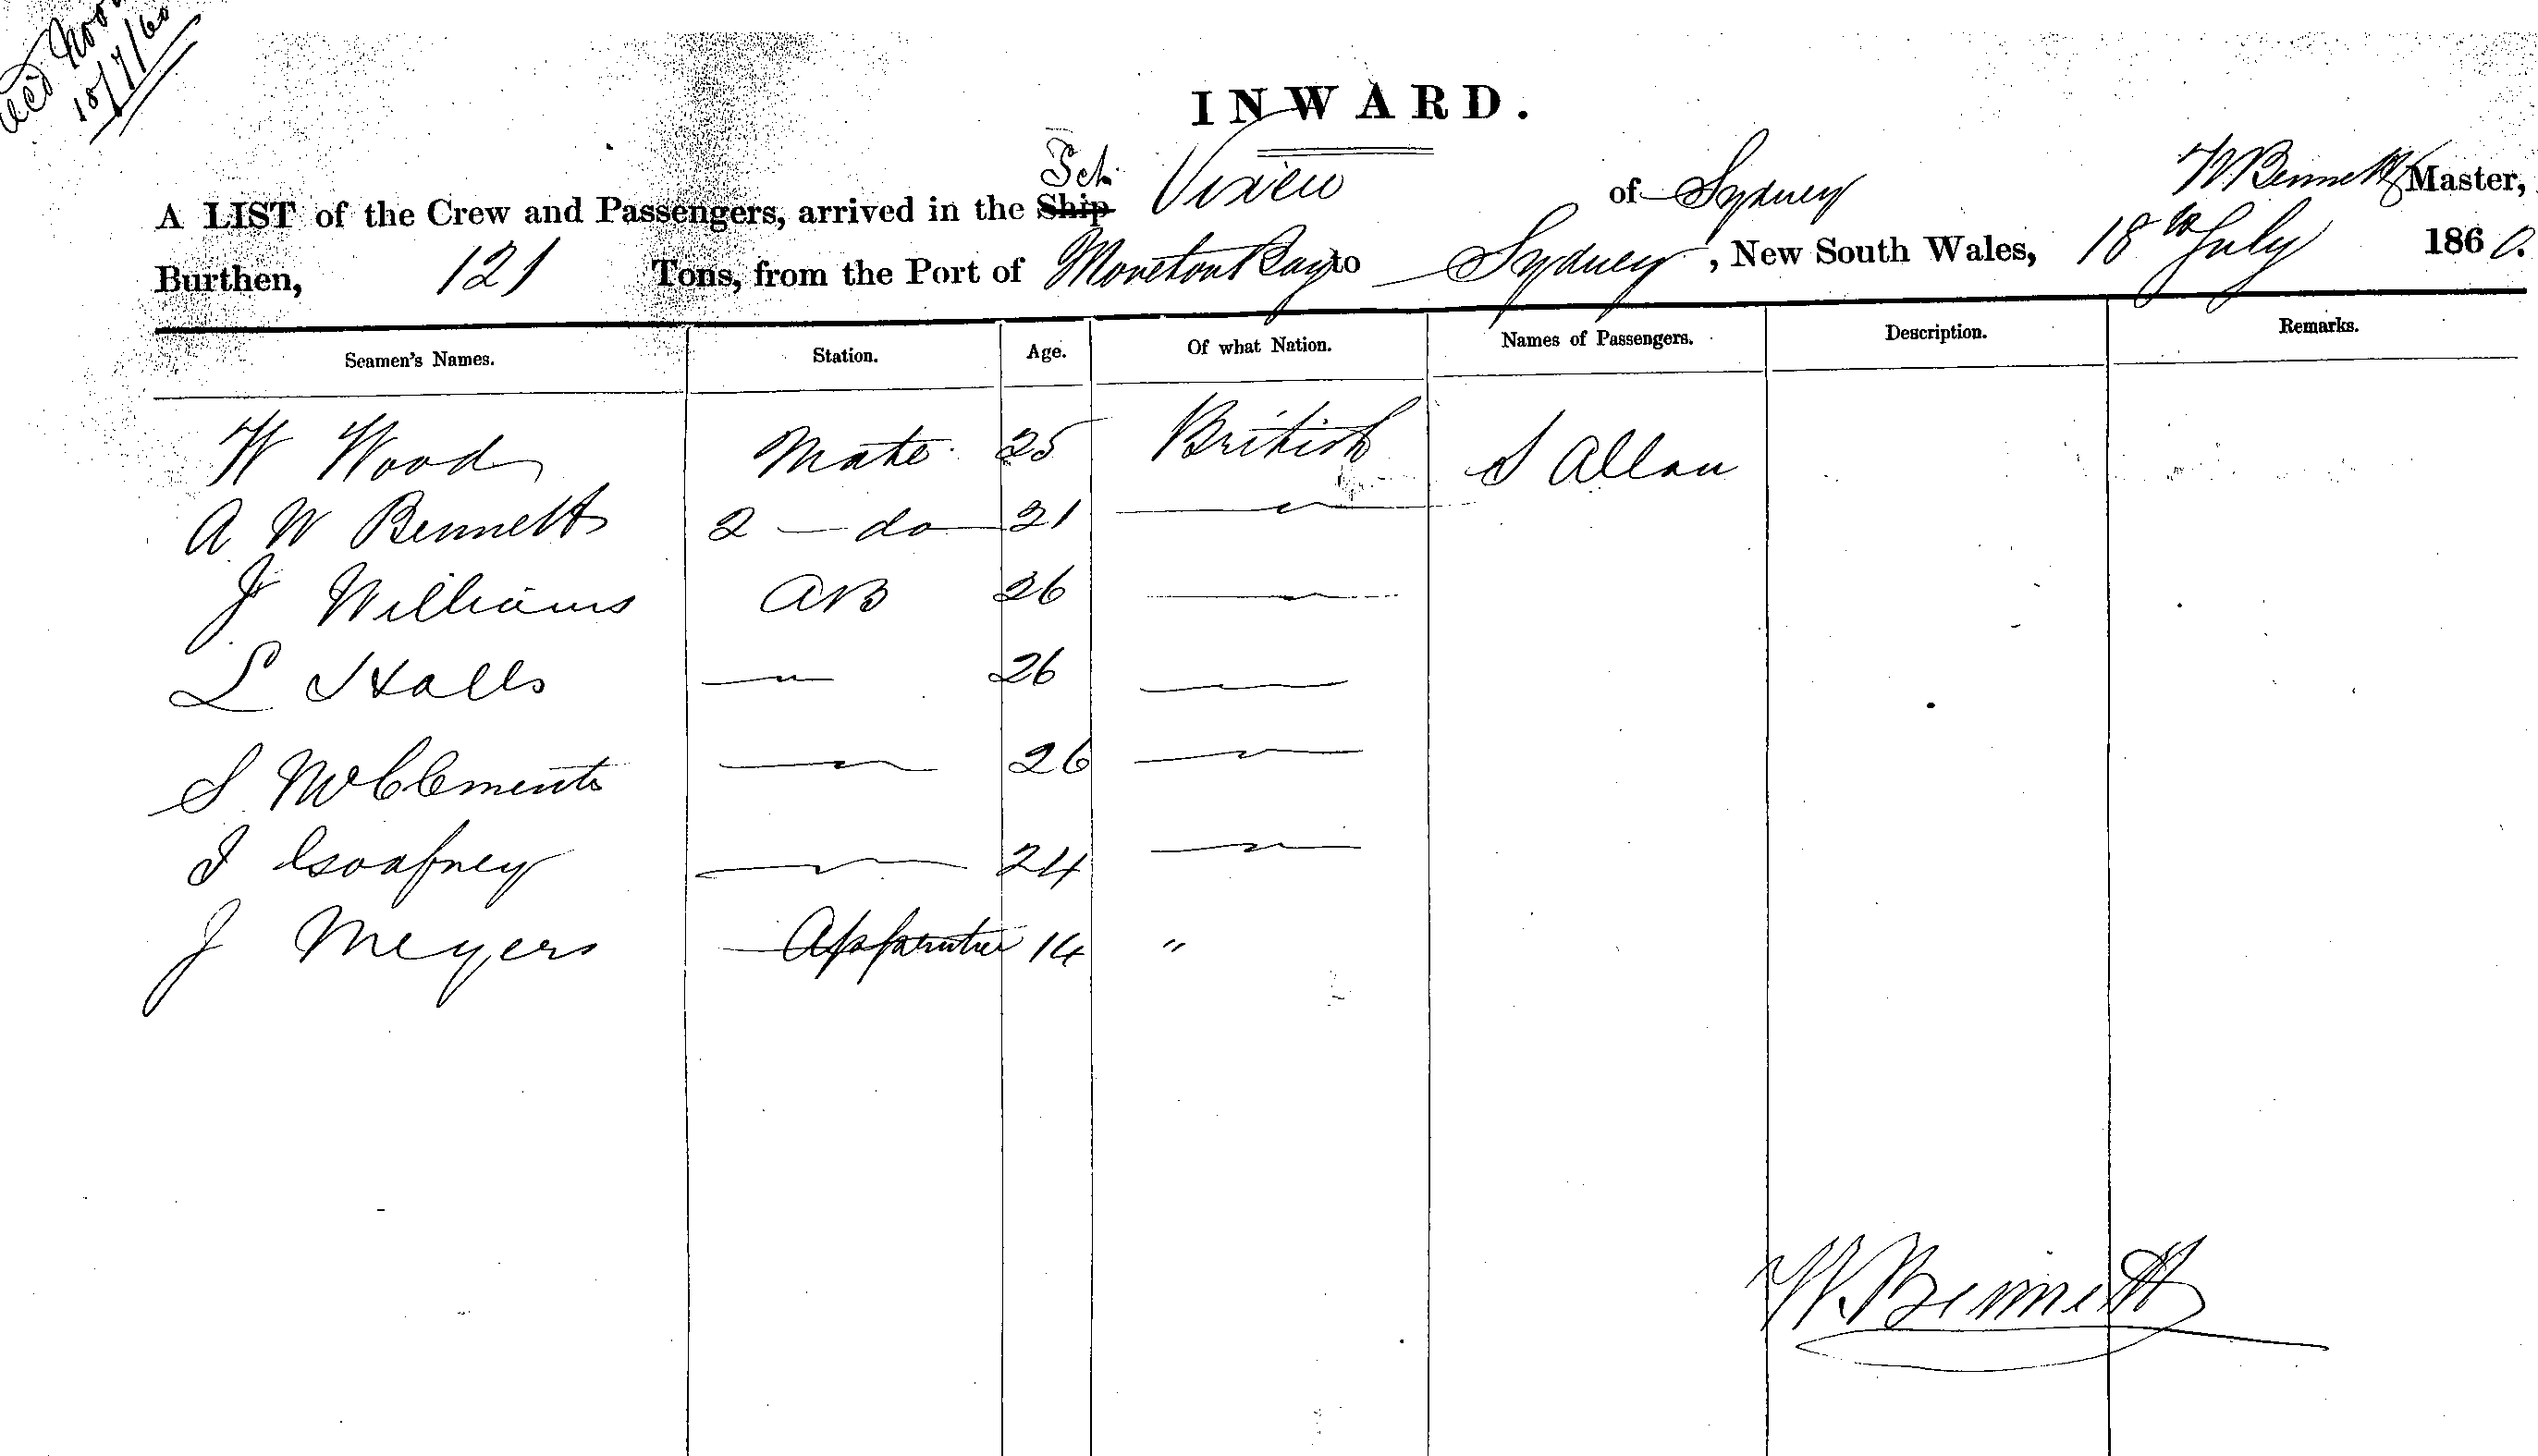 18/7/60
INWARD.
A LIST of the Crew and Passengers, arrived in the Ship Sch. Vixen of Sydney W Bennett Master,
Burthen, 121 Tons, from the Port of Moreton Bay to Sydney, New South Wales, 18th July 1860.
Seamen's Names. Station. Age. Of what Nation. Names of Passengers. Description. Remarks.
W Wood Mate 25 British S Allan
A W Bennett 2 — do 21 —
J Williams AB 26 —
L Halls — 26 —
S McClements — 26 —
J — 24 —
J Meyers Apprentice 14 "
W. Bennett